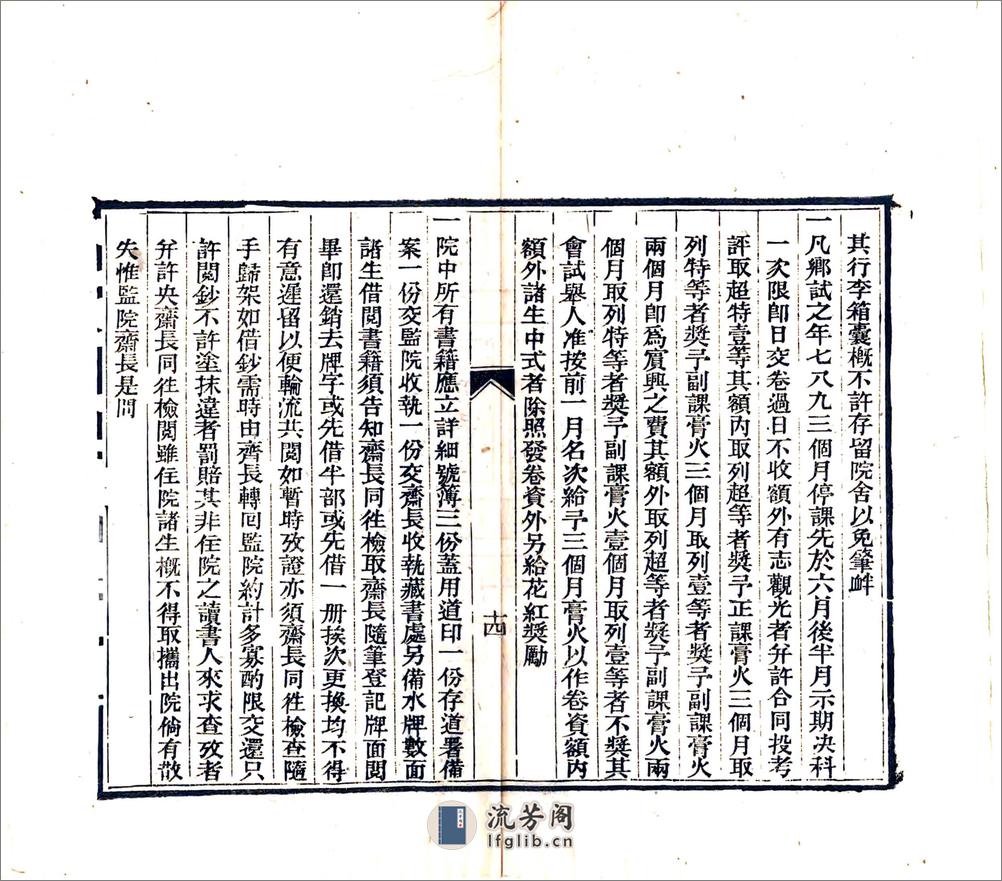 其行李箱囊概不許存留院舍以免釁衅
一凡鄉試之年七八九三個月停課先於六月後半月示期决科
一次限卽日交卷過日不收額外有志觀光者幷許合同投考
評取超特壹等其額內取列超等者獎予正課膏火三個月取
列特等者獎予副課膏火三個月取列壹等者獎予副課膏火
兩個月卽爲賓興之費其額外取列超等者獎予副課膏火兩
個月取列特等者獎予副課膏火壹個月取列壹等者不獎其
會試舉人准按前一月名次給予三個月膏火以作卷資額內
額外諸生中式者除照發卷資外另給花紅獎勵
十四
一院中所有書籍應立詳細號簿三份蓋用道印一份存道署備
案一份交監院收執一份交齋長收執藏書處另備水牌數面
諸生借閱書籍須告知齋長同徃檢取齋長隨筆登記牌面閱
畢卽還銷去牌字或先借半部或先借一册挨次更換均不得
有意遲留以便輪流共閱如暫時攷證亦須齋長同徃檢查隨
手歸架如借鈔需時由齊長轉回監院約計多寡酌限交還只
許閱鈔不許塗抹違者罰賠其非住院之讀書人來求查攷者
幷許央齋長同徃檢閱雖住院諸生概不得取攜出院倘有散
失惟監院齋長是問
流芳阁
lfglib.cn